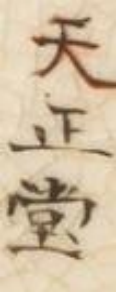 天正堂